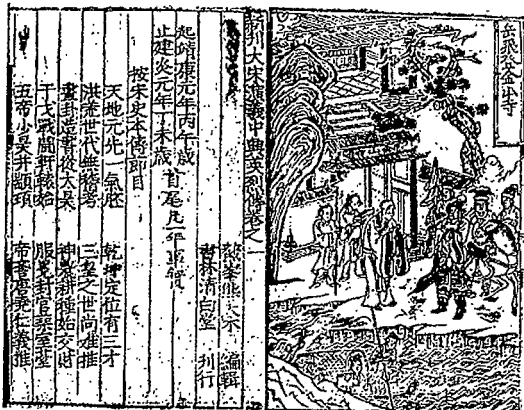 岳飛金山寺
新刊大宋演義中興英烈傳卷之一
鰲峯熊大木 編輯
書林清白堂 刊行
起靖康元年丙午歲
止建炎元年丁未歲 首尾凡一年事實
按宋史本傳節目
天地元先一氣胚 乾坤定位有三才
洪荒世代無稽考 三皇之世尚難推
畫卦造書從太昊 神農耕種始交財
干戈戰鬪軒轅始 服冕封官築室
五帝少昊并顓頊 帝嚳唐堯仁義推